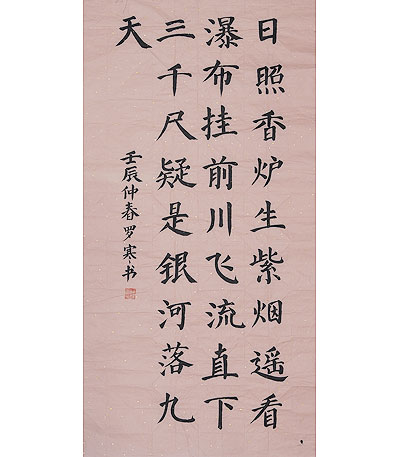 日照香炉生紫烟遥看
瀑布挂前川飞流直下
三千尺疑是银河落九
天
壬辰仲春罗寒书